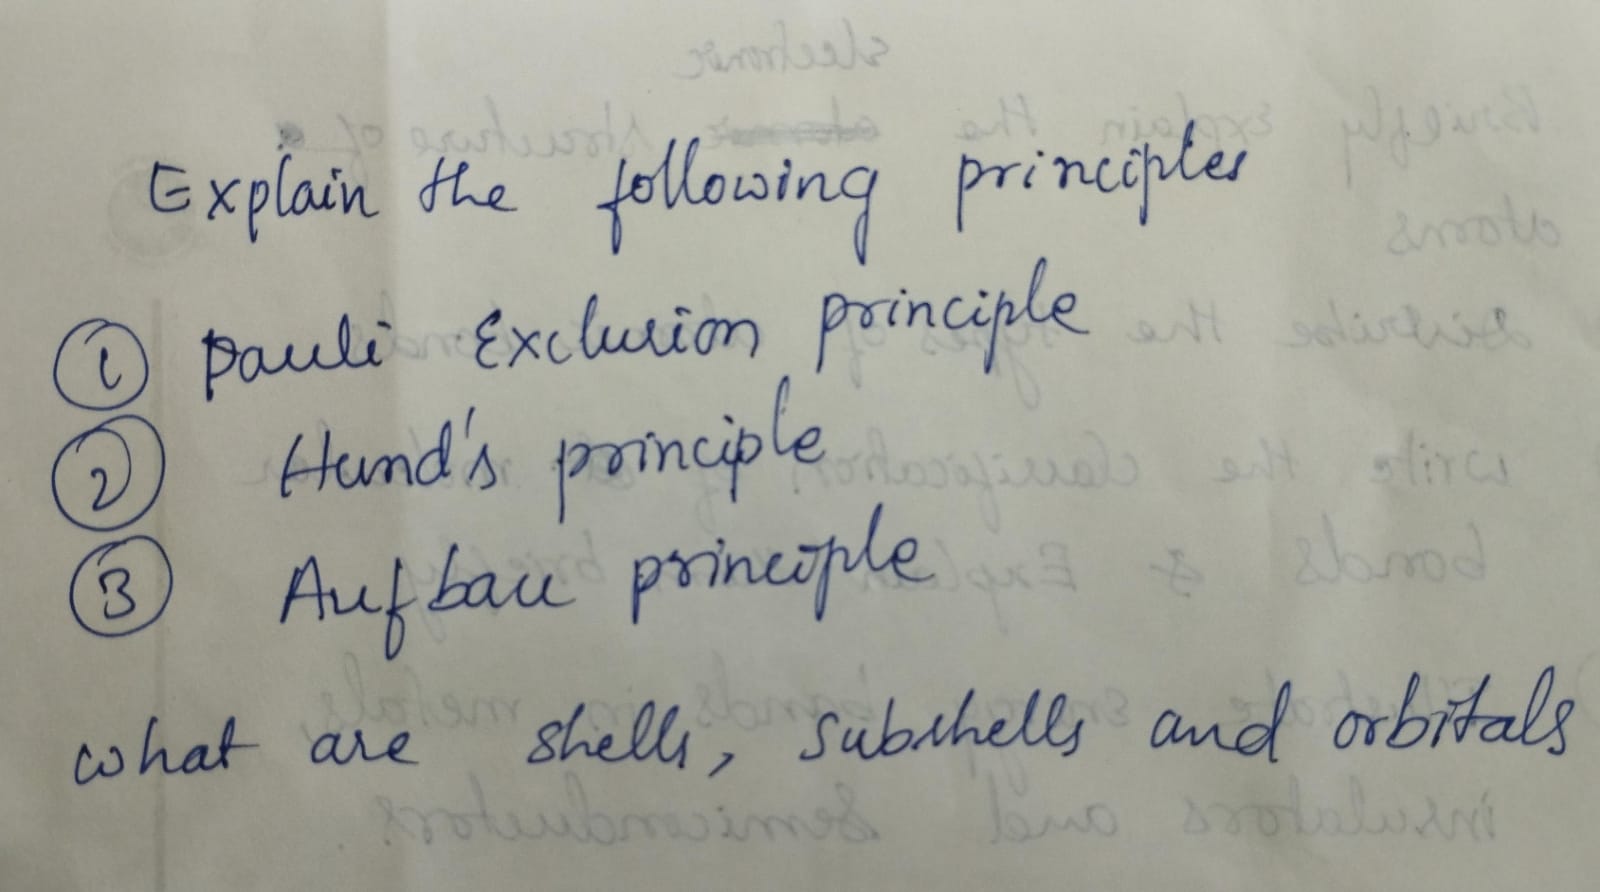 Explain the following principles
1 Pauli Exclusion principle
2 Hund's principle
3 Aufbau principle
what are shells, subshells and orbitals